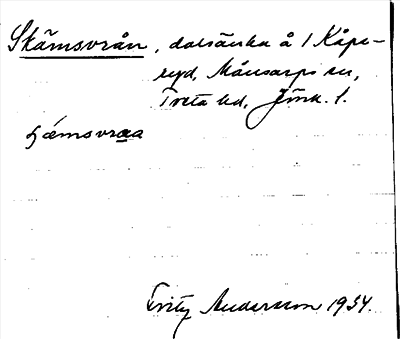 Skämsvrån, dalsänka å 1 Kåpe-
ryd, Månsarps sn,
Tveta hd, Jönk. l.
ʃǽmsvrɑa
Fritz Andersson 1934.